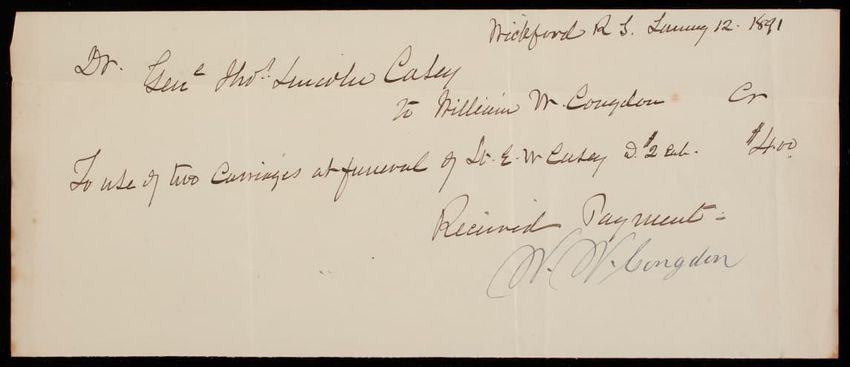 Wickford R I. January 12. 1891
Dr. Genl Thos. Lincoln Casey
to William W. Congdon Cr
To use of two Carriages at funeral of Lt. E. W Casey @ $2 each. $4.00
Received Payment
W. W. Congdon